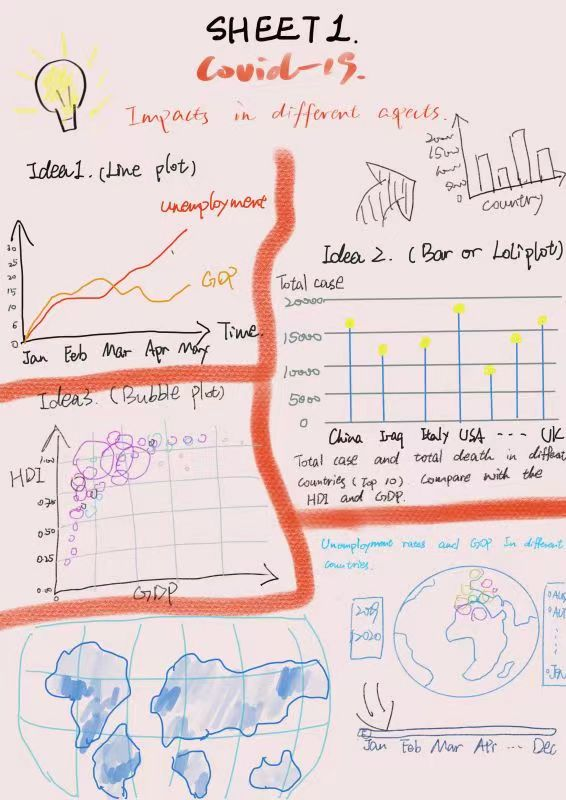 SHEET 1.
Covid-19.
Impacts in different aspects.
Idea 1. (Line plot)
unemployment
GDP
30
25
20
15
10
5
0
Time.
Jan Feb Mar Apr May
2000
1500
1000
500
0
country
Idea 2. (Bar or Loliplot)
Total case
20000
15000
10000
5000
0
China Iraq Italy USA --- UK
Total case and total death in different
countries (Top 10). Compare with the
HDI and GDP.
Idea3. (Bubble plot)
HDI
1.00
0.75
0.50
0.25
0.00
0
GDP
Unemployment rates and GDP In different
countries.
2019
2020
Jan Feb Mar Apr ... Dec